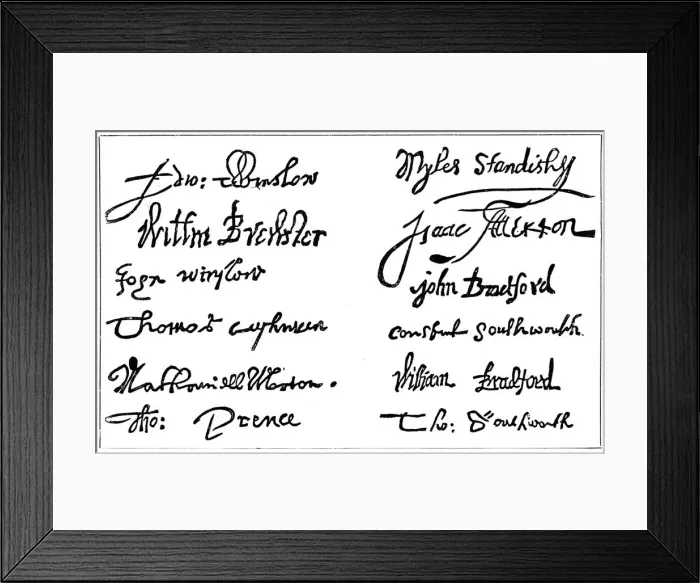 Edw: Winslow
Willm Brewster
John winslow
Thomas Cushman
Nathaniell Morton.
Tho: Prence
Myles Standish
Isaac Allerton
john Bradford
constant Southworth.
William Bradford
Tho: Southworth